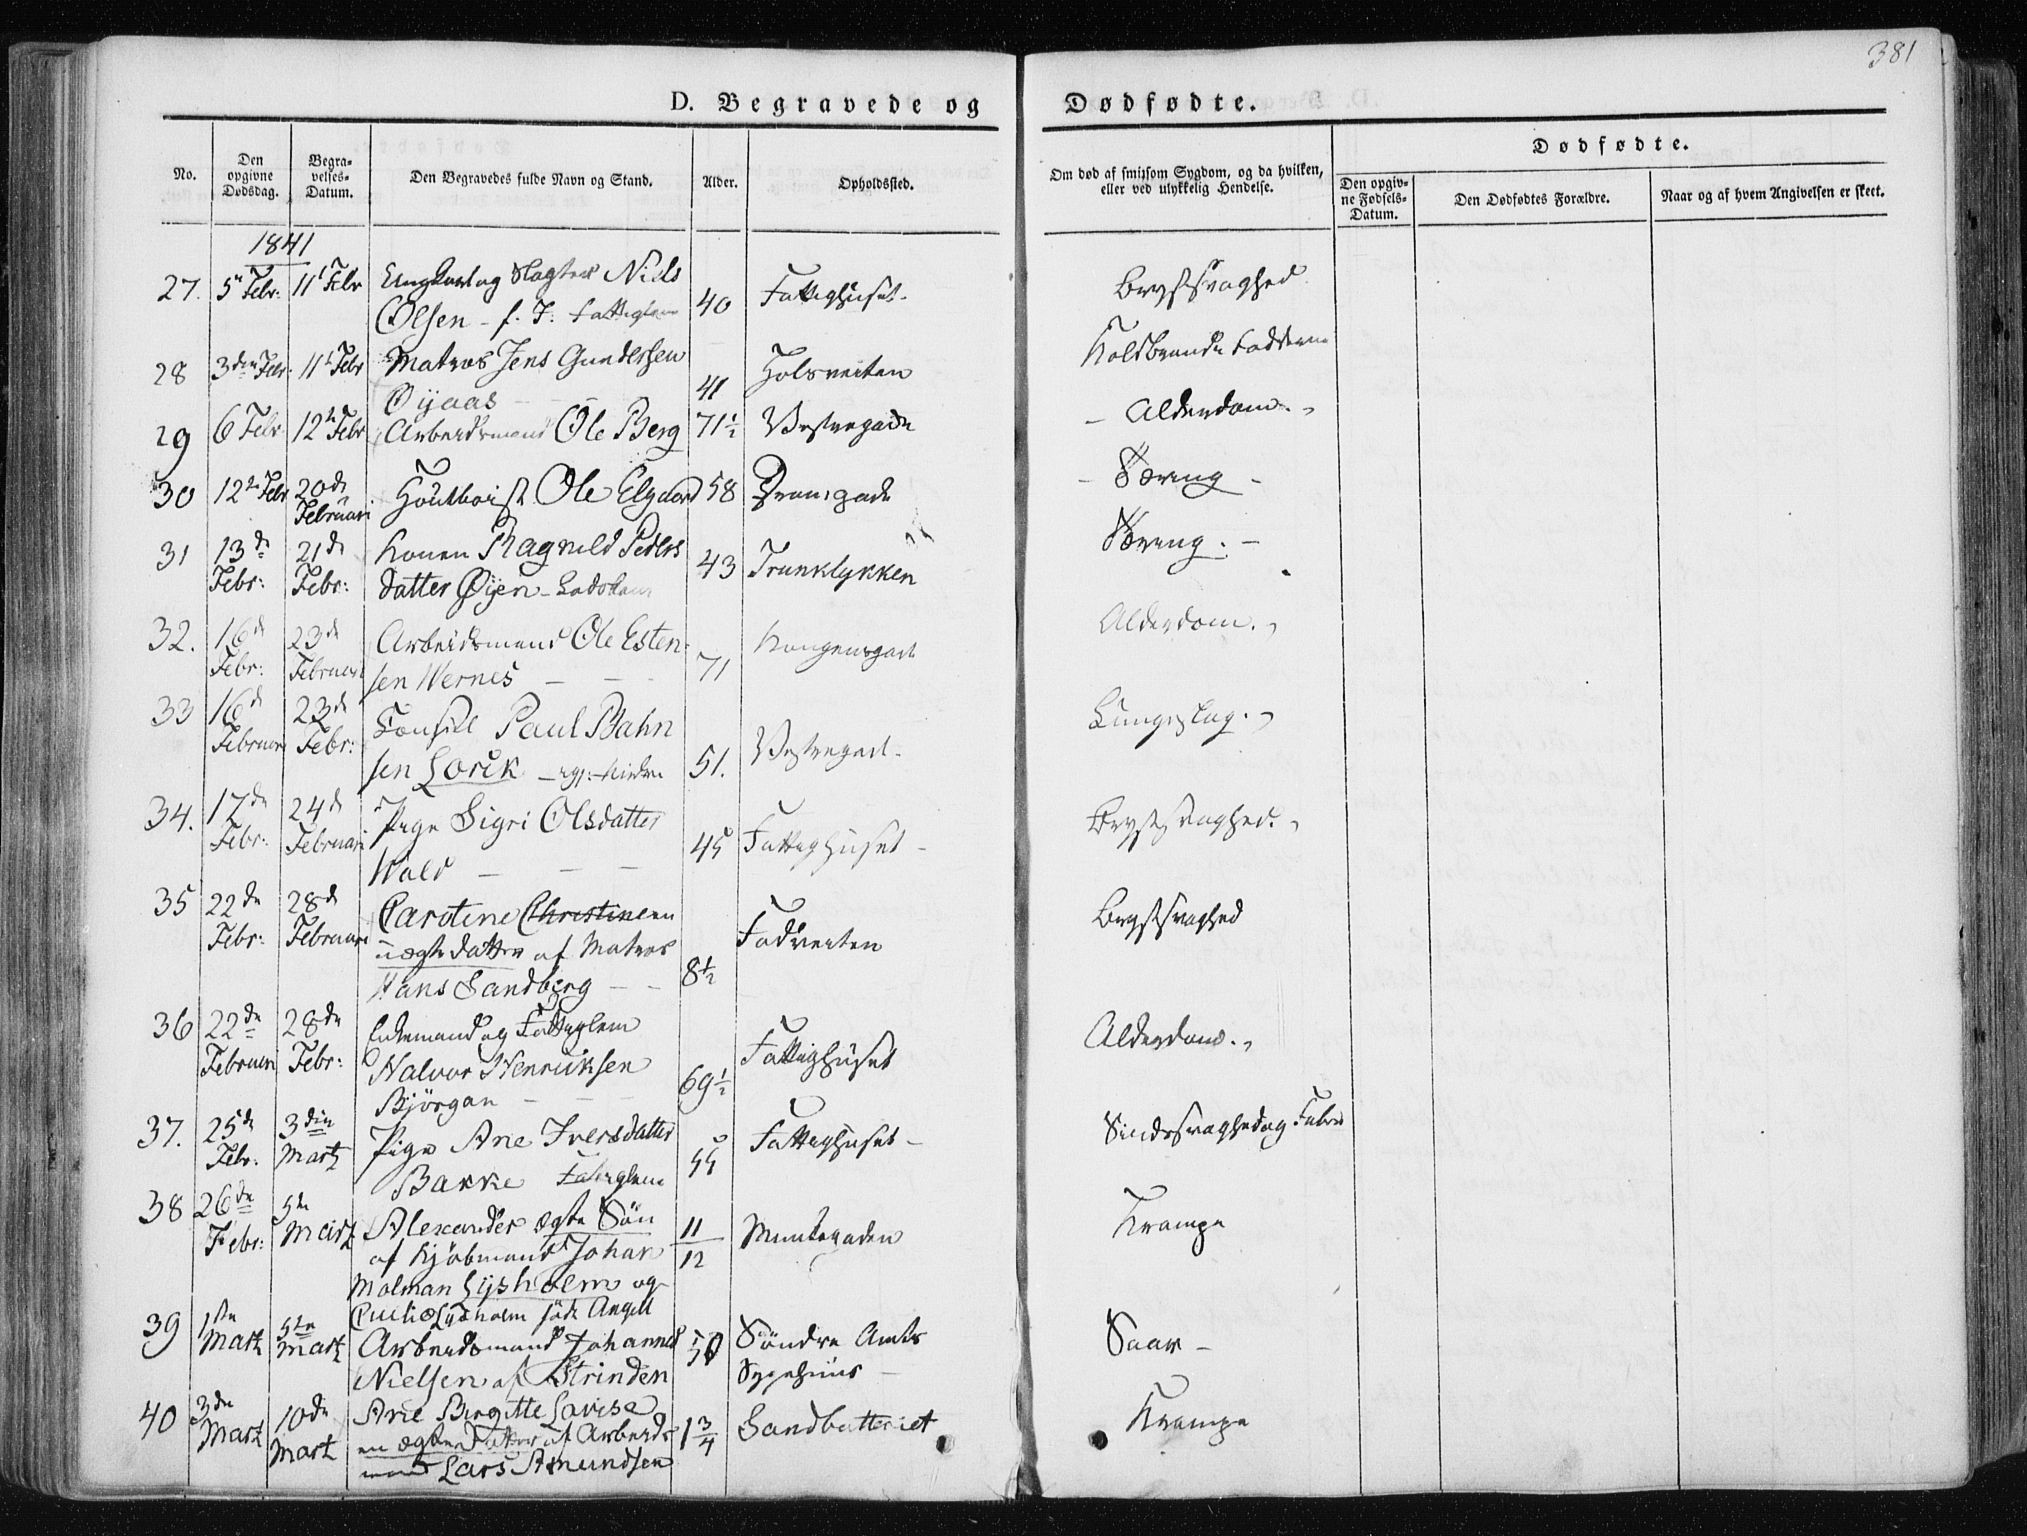 381
D. Begravede og Dødfødte.
No.
Den opgivne Dødsdag.
Begravelses-Datum.
Den Begravedes fulde Navn og Stand.
Alder.
Opholdssted.
Om død af smitsom Sygdom, og da hvilken, eller ved ulykkelig Hendelse.
Dødfødte.
Den opgivne Fødsels-Datum.
Den Dødfødtes Forældre.
Naar og af hvem Angivelsen er skeet.
1841
27. 5te Febr: 11te Febr Ungkarl og Slagter Niels 40 Fattighuset. Brystsvaghed
Olsen - f. T: Fattiglem
28 3den Febr. 11te Febr Matros Jens Gundersen 41 Holsveiten Koldbrand i Fødderne
Øyaas
29 6 Febr 12te Febr Arbeidsmand Ole Berg 71½ Vestregade - Alderdom.
30 12te Febr 20de Februari Houtboist Ole Elgaard 58 Dronsgade - Tæring -
31 13de Febr: 21de Febr: Konen Ragnild Peders 43 Trunklykken Tæring. -
datter Øyen -
32. 16de Febr: 23de Februari Arbeidsmand Ole Esten- 71 Kongensgade Alderdom.
sen Wernes
33 16de Februari 23de Febr: Consul Paul Bahn 51. Vestregade. Lungeslag.
sen Lorck
34. 17de Febr: 24de Februari Pige Sigri Olsdatter 45 Fattighuset - Brystsvaghed.
Wold
35 22de Febr: 28de Februari Caroline Christine en 8½ Fadveiten Brystsvaghed
uægte datter af Matros
Hans Sandberg
36 22de Februari 28de Febr: Enkemand og Fattiglem 69½ Fattighuset Alderdom.
Halvor Henriksen
Bjørgan
37. 25de Febr. 3die Martz Pige Ane Iversdatter 55 Fattighuset - Sindssvaghed og Feber
Bakke Fattiglem
38 26de Febr: 5te Martz Alexander ægte Søn 11/12 Munkegaden Krampe
af Kjøbmand Johan
Molman Lysholm og
Lysholm født Angell
39 1ste Martz 5te Martz Arbeidsmand Johannes 50 Søndre Amts Saar -
Nielsen af Strinden Sygehuus
40 3de Martz 10de Martz Ane Birgitte Lovise 1¾ Sandbatteriet Krampe
en ægte datter af Arbeids
mand Lars Amundsen